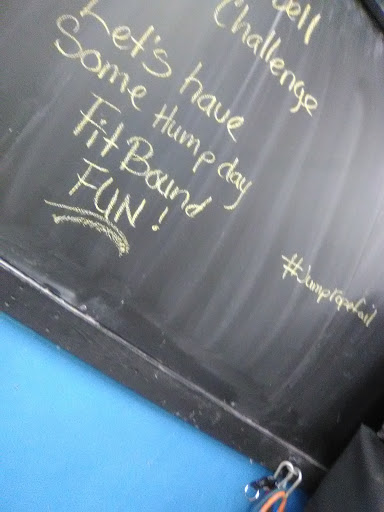 ell
Challenge
Let's have
Some Hump day
FitBound
FUN!
#Jumpropefail